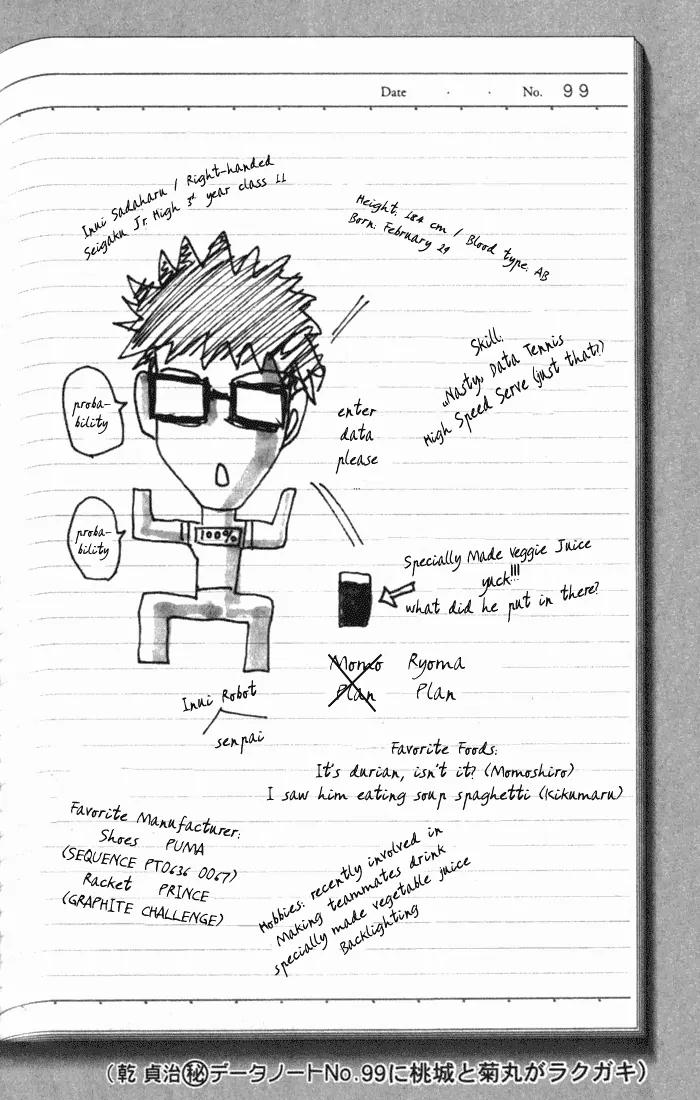 Date . . No. 99
Inui Sadaharu / Right-handed
Seigaku Jr. High 3rd year class 11
Height: 184 cm / Blood type: AB
Born: February 29
Skill:
"Nasty" Data Tennis
High Speed Serve (just that?)
proba-
bility
enter
data
please
proba-
bility
100%
Specially Made Veggie Juice
yuck!!!
what did he put in there?
Momo
Plan
Ryoma
Plan
Inui Robot
senpai
Favorite Foods:
It's durian, isn't it? (Momoshiro)
I saw him eating soup spaghetti (Kikumaru)
Favorite Manufacturer:
Shoes PUMA
(SEQUENCE PT0636 0067)
Racket PRINCE
(GRAPHITE CHALLENGE)
Hobbies: recently involved in
Making teammates drink
specially made vegetable juice
Backlighting
(乾 貞治㊙データノートNo.99に桃城と菊丸がラクガキ)